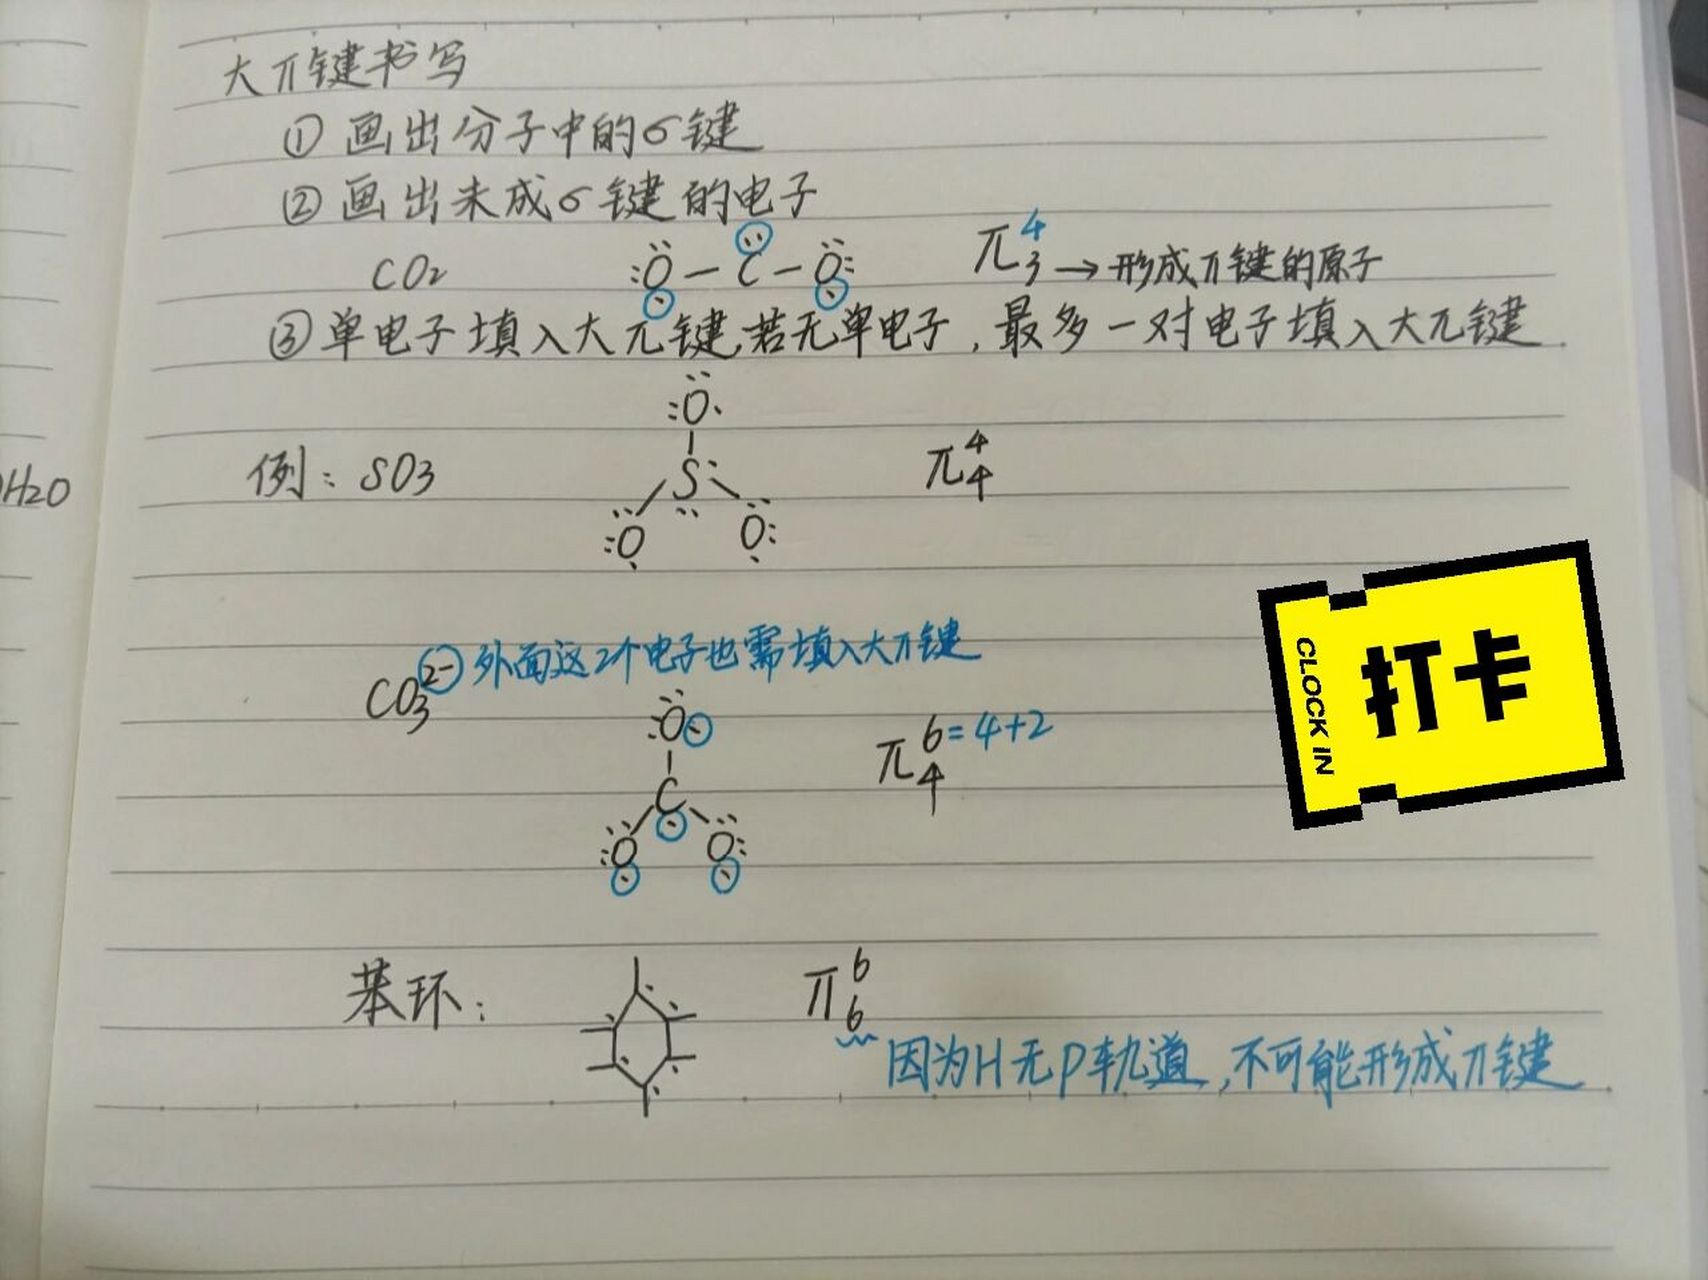 大π键书写
① 画出分子中的σ键
② 画出未成σ键的电子
CO2 :O-C-O: π₃⁴→形成π键的原子
③单电子填入大π键,若无单电子,最多一对电子填入大π键.
:O·
例: SO3 S π₄⁴
:O O:
H2O
CO3²⁻ 外面这2个电子也需填入大π键
:O·
π₄⁶=4+2
C
:O O:
苯环: π₆⁶
因为H无P轨道,不可能形成π键
打卡
CLOCK IN